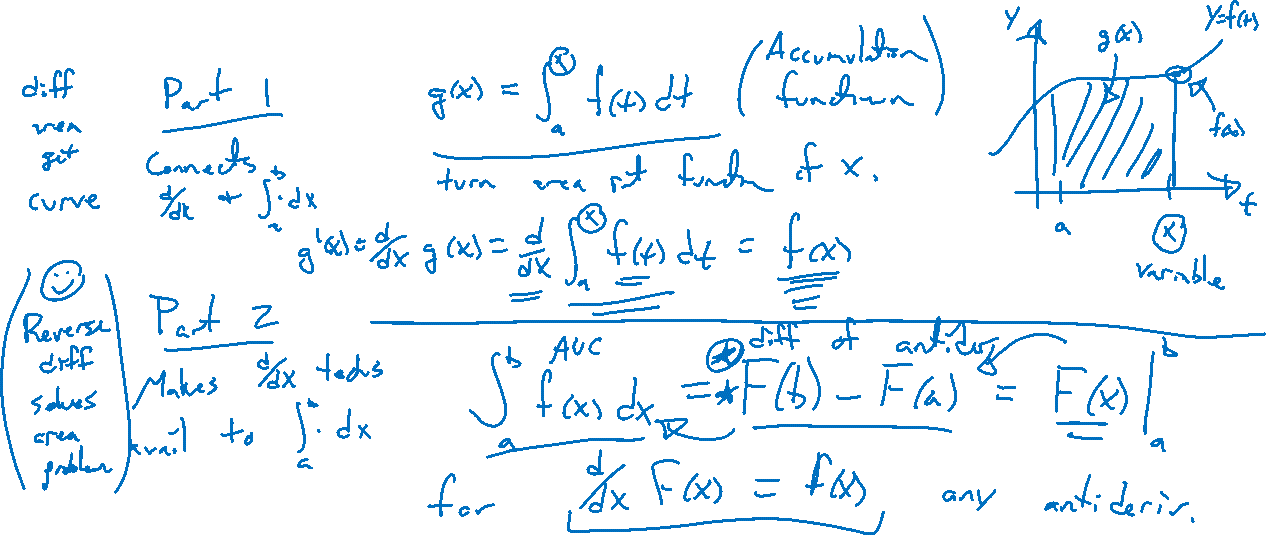 diff
area
get
curve
Part 1
Connects
d/dx + ∫_a^b · dx
g(x) = ∫_a^x f(t) dt (Accumulation function)
turn area into function of x.
g'(x) = d/dx g(x) = d/dx ∫_a^x f(t) dt = f(x)
y
g(x)
y=f(t)
f(x)
a
x
t
variable
(☺
Reverse
diff
solves
area
problem)
Part 2
Makes d/dx techs
avail to ∫_a^b · dx
AUC
diff of antideriv
∫_a^b f(x) dx =* F(b) - F(a) = F(x) |_a^b
for d/dx F(x) = f(x) any antideriv.